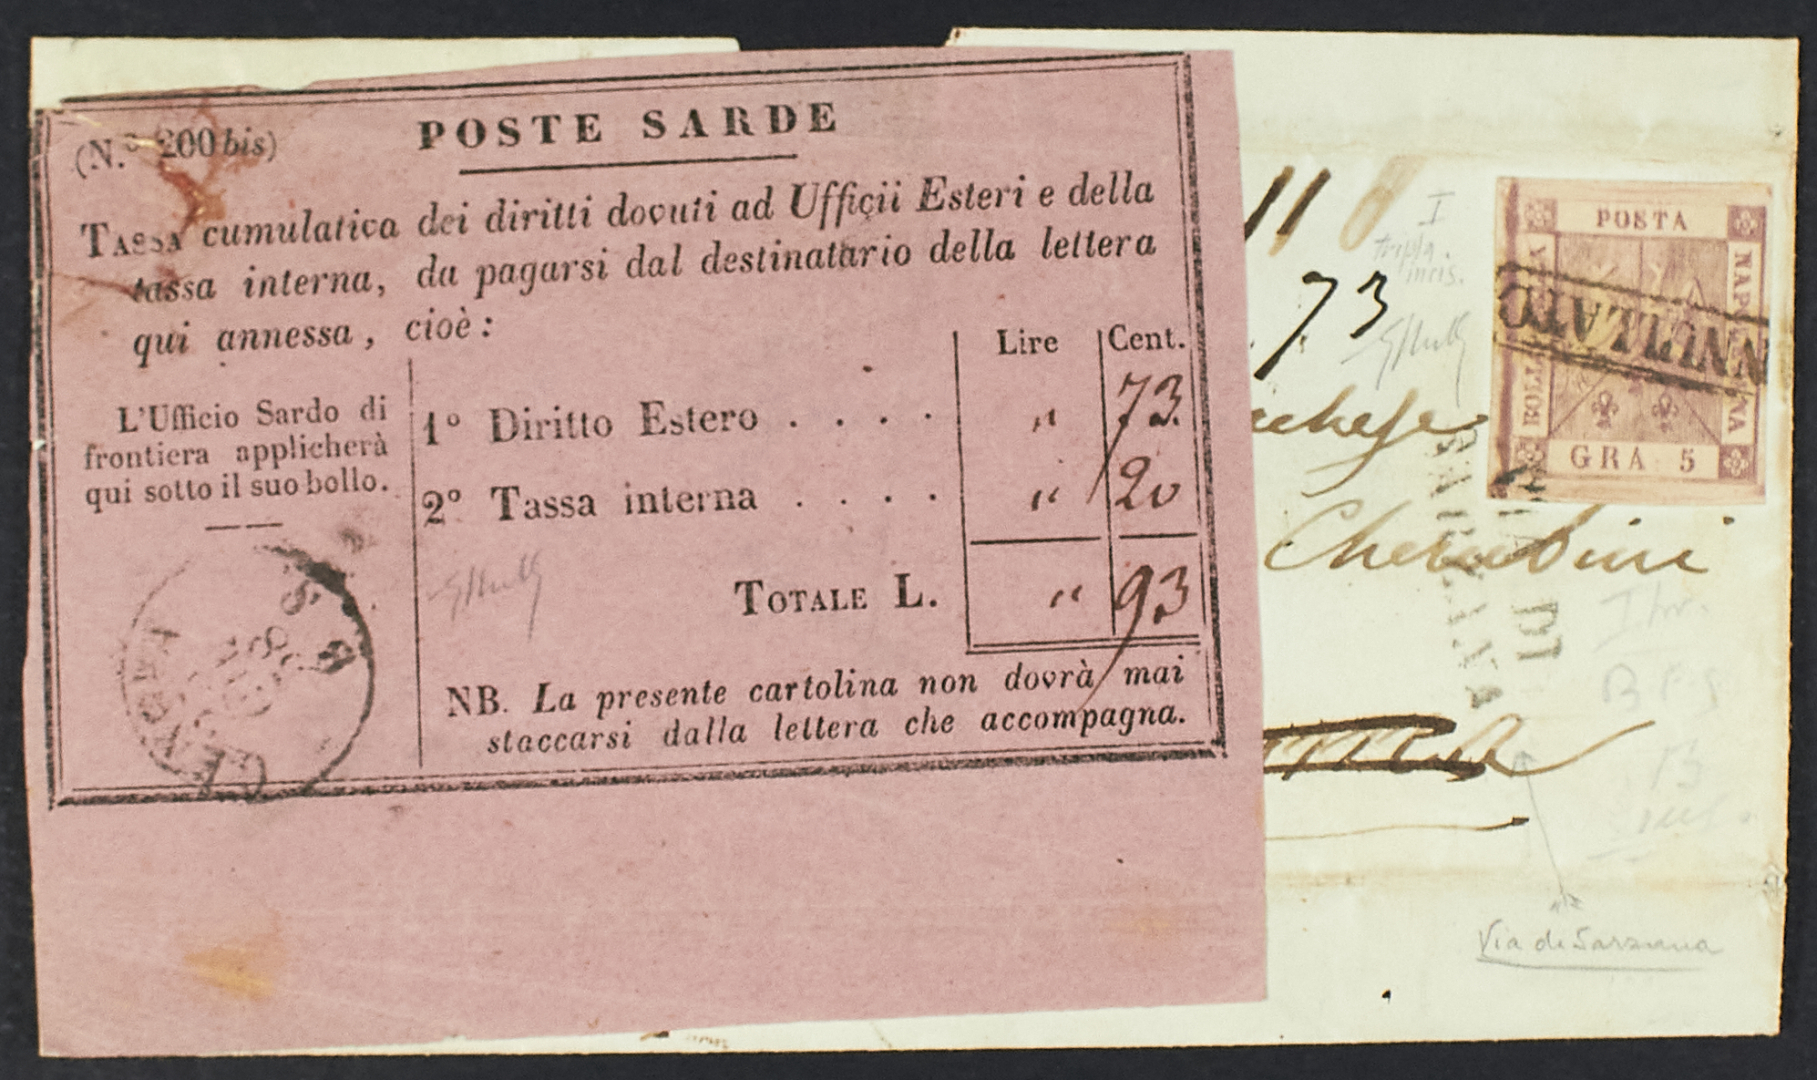 (N.º 200 bis)
POSTE SARDE
TASSA cumulativa dei diritti dovuti ad Ufficii Esteri e della
tassa interna, da pagarsi dal destinatario della lettera
qui annessa, cioè:
Lire Cent.
L'Ufficio Sardo di
frontiera applicherà
qui sotto il suo bollo.
1º Diritto Estero . . . . " 73
2º Tassa interna . . . . " 20
TOTALE L. " 93
NB. La presente cartolina non dovrà mai
staccarsi dalla lettera che accompagna.
GENOVA
11
73
I
tripla
incis.
POSTA
NAP
NA
BOLL
A
GRA 5
NNULLATO
Cherubini
VIA DI
SARZANA
Via di Sarzana